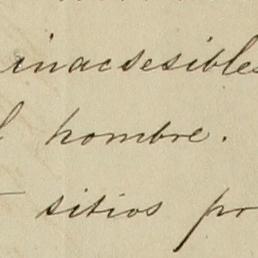 inacsesibles
l hombre.
sitios pr